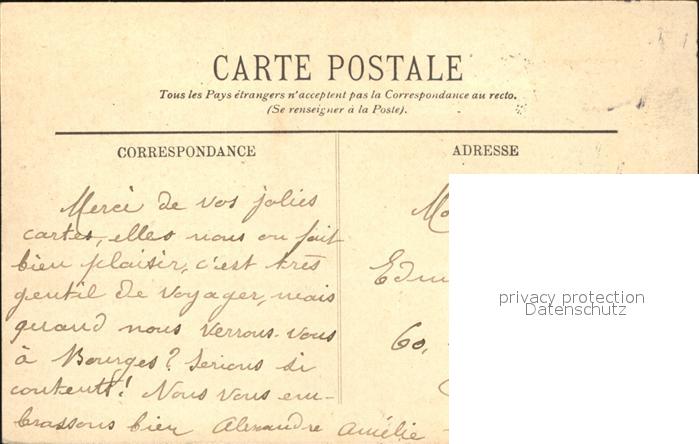 CARTE POSTALE
Tous les Pays étrangers n'acceptent pas la Correspondance au recto.
(Se renseigner à la Poste).
CORRESPONDANCE
Merci de vos jolies
cartes, elles nous on fait
bien plaisir, c'est très
gentil de voyager, mais
quand nous verrons-vous
à Bourges? Serions si
contents! Nous vous em-
brassons bien Alexandre Amélie
ADRESSE
60,
privacy protection
Datenschutz